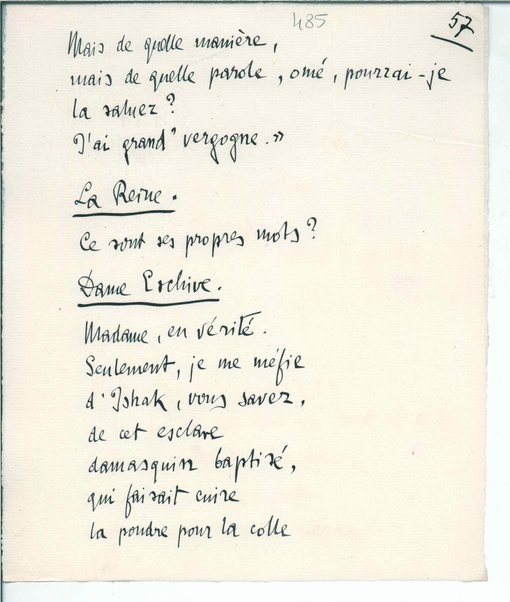 485
57
Mais de quelle manière,
mais de quelle parole, omé, pourrai-je
la saluer?
J'ai grand' vergogne.»
La Reine.
Ce sont ses propres mots?
Dame Eschive.
Madame, en vérité.
Seulement, je me méfie
d'Ishak, vous savez,
de cet esclave
damasquin baptisé,
qui faisait cuire
la poudre pour la colle